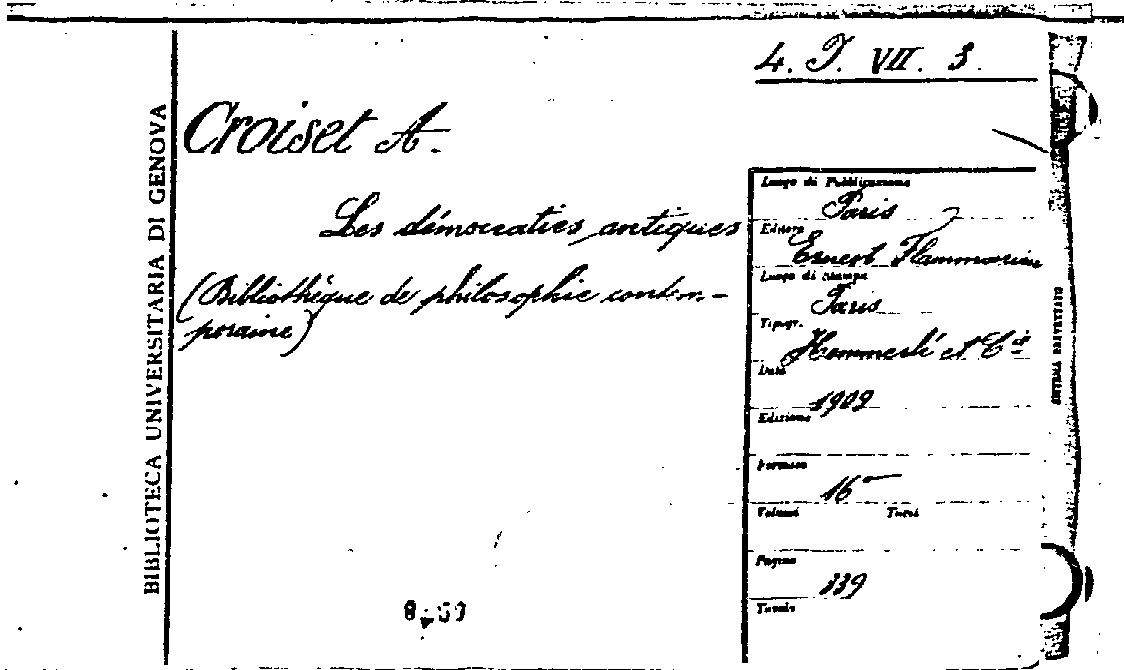 4. J. VII. 3.
BIBLIOTECA UNIVERSITARIA DI GENOVA
Croiset A.
Les démocraties antiques
(Bibliothèque de philosophie contem-
poraine)
Luogo di Pubblicazione
Paris
Editore
Ernest Flammarion
Luogo di stampa
Paris
Tipogr.
et Cie
Data
1909
Edizione
Formato
16°
Volumi Tomi
Pagine
339
Tavole
SISTEMA BREVETTATO